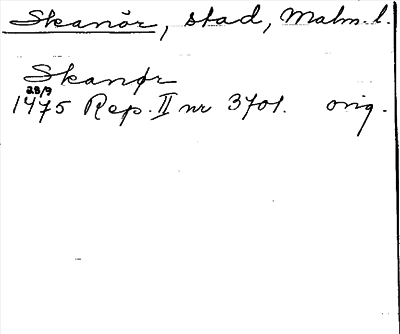 Skanör, stad, Malm. l.
Skanør
1475 28/9 Rep. II nr 3701. orig.